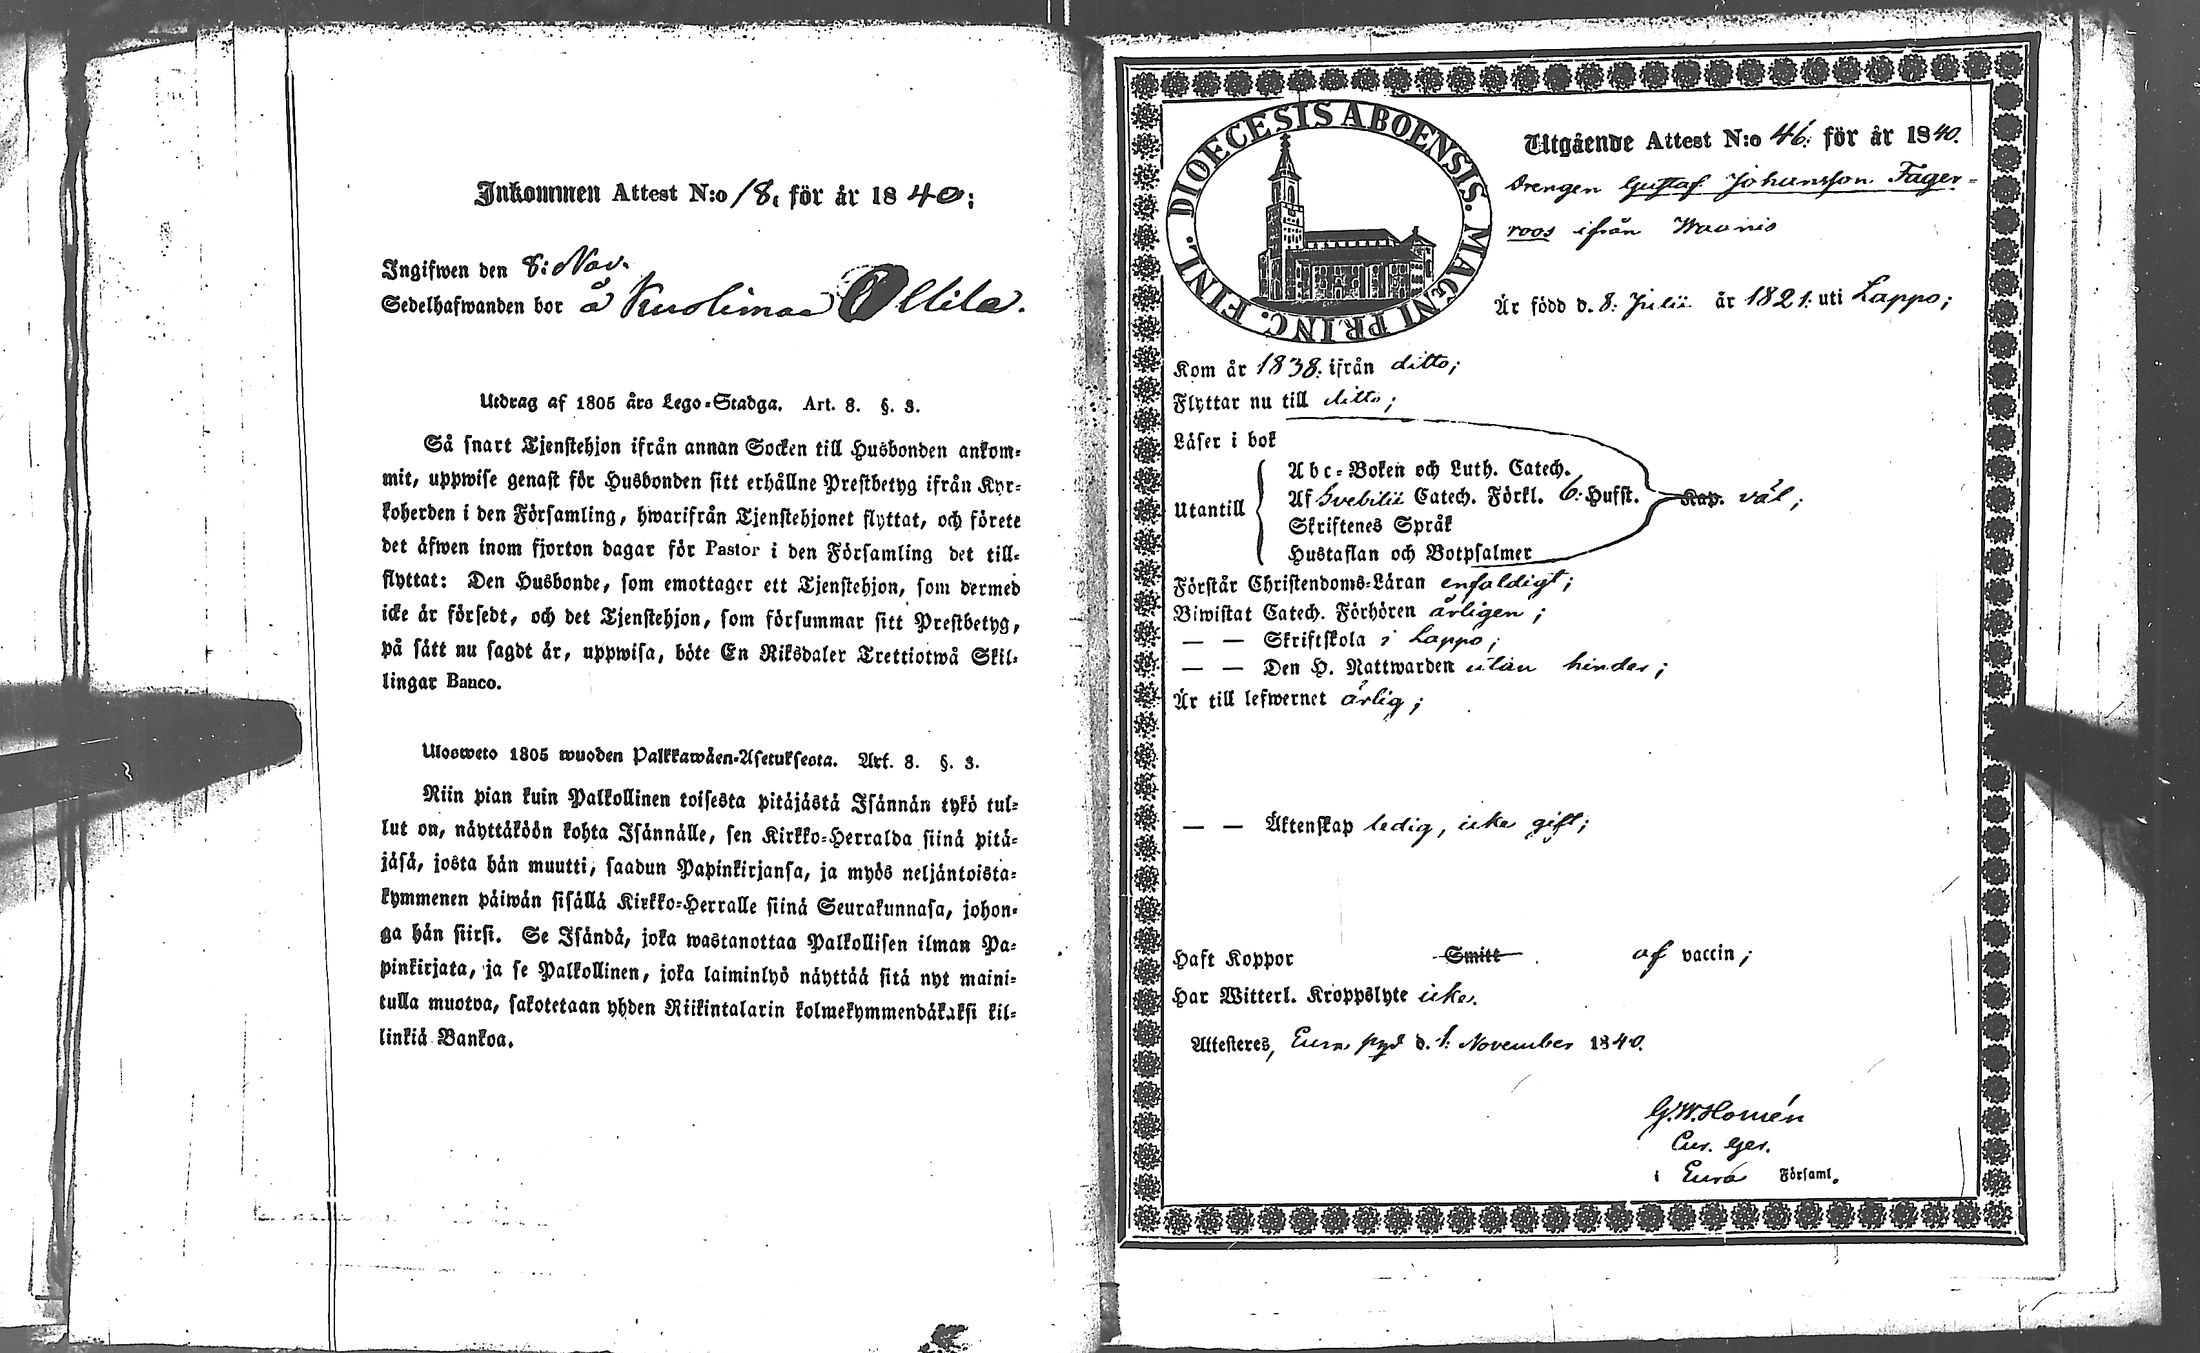 Inkommen Attest N:o 18, för år 1840;
Ingifwen den 8: Nov.
Sedelhafwanden bor å Kuolimaa Ollila.
Utdrag af 1805 års Lego-Stadga. Art. 8. §. 3.
Så snart Tjenstehjon ifrån annan Socken till Husbonden ankom-
mit, uppwise genast för Husbonden sitt erhållne Prestbetyg ifrån Kyr-
koherden i den Församling, hwarifrån Tjenstehjonet flyttat, och förete
det äfwen inom fjorton dagar för Pastor i den Församling det till-
flyttat: Den Husbonde, som emottager ett Tjenstehjon, som dermed
icke är försedt, och det Tjenstehjon, som försummar sitt Prestbetyg,
på sätt nu sagdt är, uppwisa, böte En Riksdaler Trettiotwå Skil-
lingar Banco.
Ulosweto 1805 wuoden Palkkawäen-Asetuksesta. Art. 8. §. 3.
Niin pian kuin Palkollinen toisesta pitäjästä Isännän tykö tul-
lut on, näyttäköön kohta Isännälle, sen Kirkko-Herralda siinä pitä-
jäsä, josta hän muutti, saadun Papinkirjansa, ja myös neljäntoista-
kymmenen päiwän sisällä Kirkko-Herralle siinä Seurakunnasa, johon-
ga hän siirsi. Se Isändä, joka wastanottaa Palkollisen ilman Pa-
pinkirjata, ja se Palkollinen, joka laiminlyö näyttää sitä nyt maini-
tulla muotoa, sakotetaan yhden Riikintalarin kolmekymmendäkaksi kil-
linkiä Bankoa.
DIOECESIS ABOENSIS. MAGNI PRINC. FINL.
Utgående Attest N:o 46: för år 1840.
Drengen Gustaf Johansson Fager-
roos ifrån Waanis
Är född d. 8: Julii år 1821: uti Lappo;
Kom år 1838: ifrån ditto;
Flyttar nu till ditto;
Läser i bok
Utantill
Abc-Boken och Luth. Catech.
Af Svebilii Catech. Förkl. 6: Hufst. Kap. väl;
Skriftenes Språk
Hustaflan och Botpsalmer
Förstår Christendoms-Läran enfaldigt;
Biwistat Catech. Förhören årligen;
— — Skriftskola i Lappo;
— — Den H. Nattwarden utan hinder;
Är till lefwernet ärlig;
— — Äktenskap ledig, icke gift;
Haft Koppor Smitt af vaccin;
Har Witterl. Kroppslyte icke.
Attesteres, Eura pgd d. 1: November 1840.
G.W. Homén
Cur. Ger.
i Eura Församl.